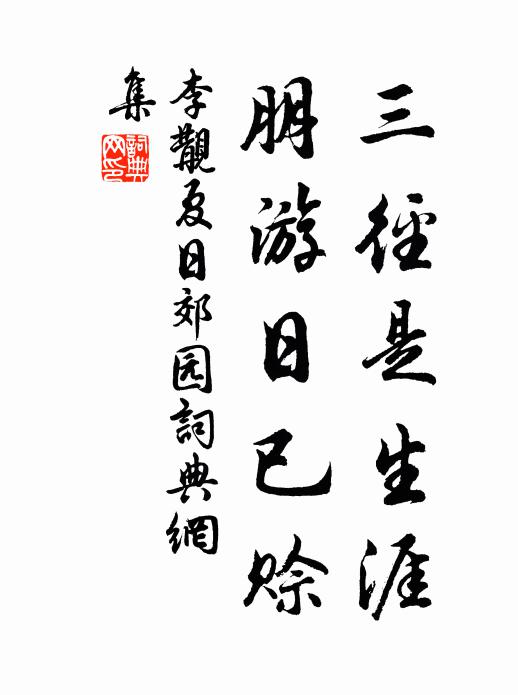 三徑是生涯
朋游日已赊
李觀夏日郊园詞典網
集
詞典
网印